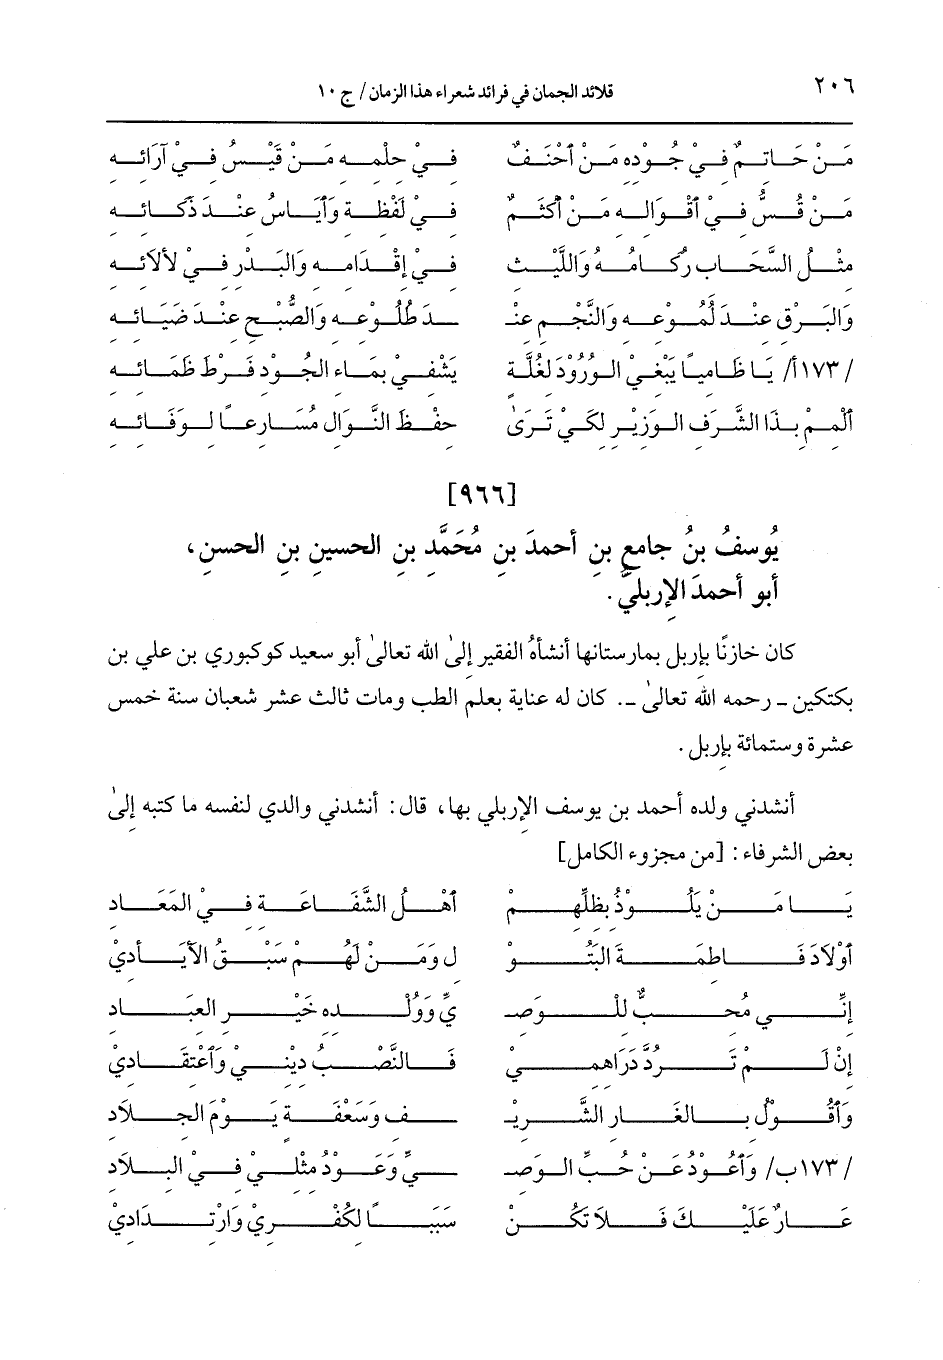 ٢٠٦ قلائد الجمان في فرائد شعراء هذا الزمان / ج ١٠
مَنْ حَاتِمٌ فِيْ جُودِهِ مَنْ أَحْنَفٌ فِيْ حِلْمِهِ مَنْ قَيْسُ فِيْ آرَائِهِ
مَنْ قُسُّ فِيْ أَقْوَالِهِ مَنْ أَكْثَمٌ فِيْ لَفْظِهِ وَأَيَاسُ عِنْدَ ذَكَائِهِ
مِثْلُ السَّحَابِ رُكَامُهُ وَاللَّيْثِ فِيْ إِقْدَامِهِ وَالبَدْرِ فِيْ لأْلَائِهِ
وَالبَرْقِ عِنْدَ لُمُوعِهِ وَالنَّجْمِ عِنْـ ـدَ طُلُوعِهِ وَالصُّبْحِ عِنْدَ ضِيَائِهِ
/ ١٧٣أ/ يَا ظَامِيًا يَبْغِي الوُرُوْدَ لِغُلَّةٍ يَشْفِيْ بِمَاءِ الجُوْدِ فَرْطَ ظَمَائِهِ
أَلْمِمْ بِذَا الشَّرَفِ الوَزِيْرِ لِكَيْ تَرَىٰ حِفْظَ النَّوَالِ مُسَارِعًا لِوَفَائِهِ
[٩٦٦]
يُوسفُ بنُ جامعِ بنِ أحمدَ بنِ مُحَمَّدِ بنِ الحسينِ بنِ الحسنِ،
أبو أحمدَ الإربليُّ.
كان خازنًا بإربل بمارستانها أنشأهُ الفقير إلىٰ الله تعالىٰ أبو سعيد كوكبوري بن علي بن
بكتكين ـ رحمه الله تعالىٰ ـ. كان له عناية بعلم الطب ومات ثالث عشر شعبان سنة خمس
عشرة وستمائة بإربل.
أنشدني ولده أحمد بن يوسف الإربلي بها، قال: أنشدني والدي لنفسه ما كتبه إلىٰ
بعض الشرفاء: [من مجزوء الكامل]
يَا مَنْ يَلُوْذُ بِظِلِّهِمْ أَهْلُ الشَّفَاعَةِ فِيْ المَعَادِ
أَوْلَادَ فَاطِمَةَ البَتُوْ لِ وَمَنْ لَهُمْ سَبْقُ الأَيَادِيْ
إِنِّي مُحِبٌّ لِلْوَصِـ ـيِّ وَوُلْدِهِ خَيْرِ العِبَادِ
إِنْ لَمْ تَرُدَّ دَرَاهِمِيْ فَالنَّصْبُ دِيْنِيْ وَاعْتِقَادِيْ
وَأَقُوْلُ بِالغَارِ الشَّرِيْـ ـفِ وَسَعْفَةٍ يَوْمَ الجِلَادِ
/ ١٧٣ب/ وَأَعُوْدُ عَنْ حُبِّ الوَصِـ ـيِّ وَعَوْدُ مِثْلِيْ فِيْ البِلَادِ
عَارٌ عَلَيْكَ فَلَا تَكُنْ سَبَبًا لِكُفْرِيْ وَارْتِدَادِيْ